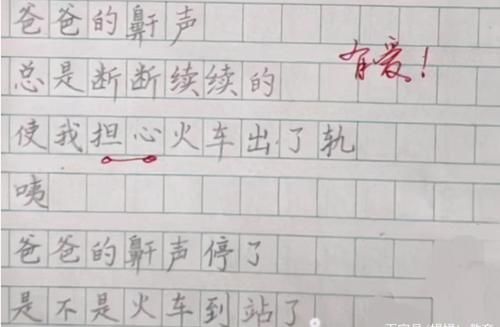 爸爸的鼾声
总是断断续续的
有爱！
使我担心火车出了轨
咦
爸爸的鼾声停了
是不是火车到站了